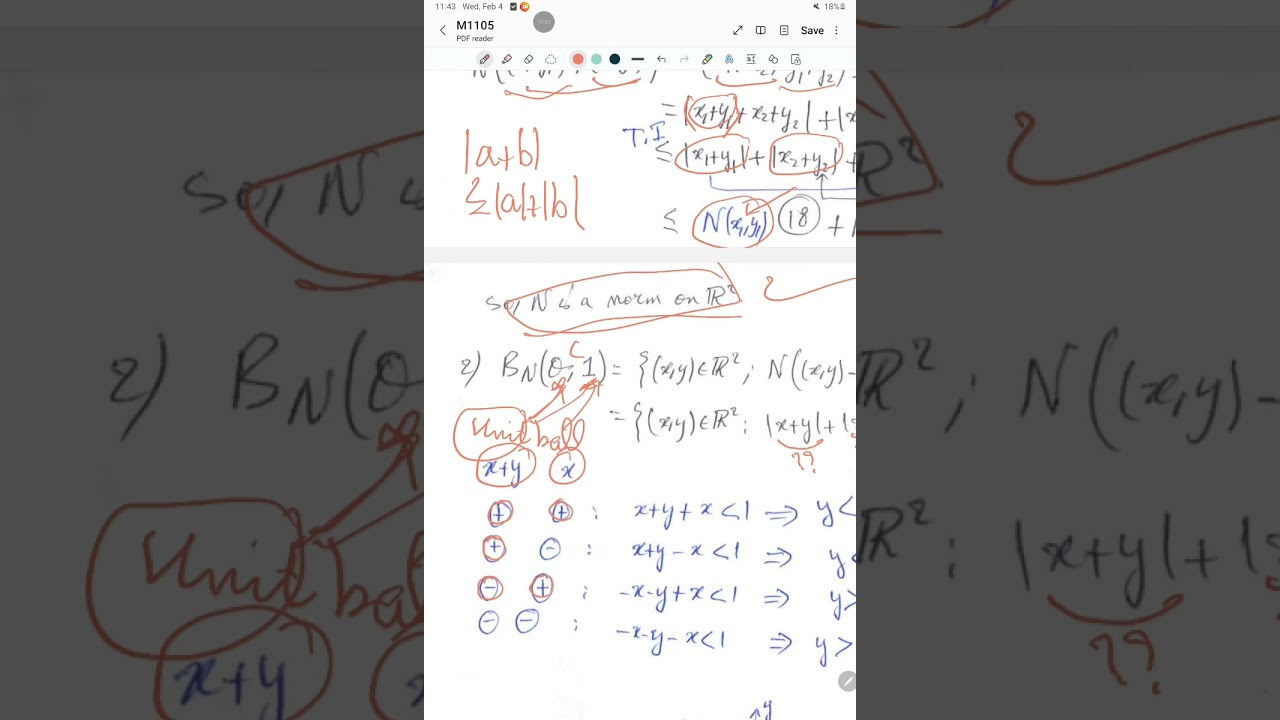 11:43 Wed, Feb 4
18%
M1105
PDF reader
Save
= |x₁+y₁+x₂+y₂| + |x
|a+b|
≤|a|+|b|
T.I
≤ |x₁+y₁| + |x₂+y₂| +
≤ N(x₁,y₁) (18) +
So, N is a norm on ℝ²
2) B_N(0,1) = {(x,y)∈ℝ²; N((x,y)-
C
= {(x,y)∈ℝ²: |x+y|+
Unit ball
??
x+y x
+ + : x+y+x<1 ⇒ y<
+ - : x+y-x<1 ⇒ y<
- + : -x-y+x<1 ⇒ y>
- - : -x-y-x<1 ⇒ y>
y